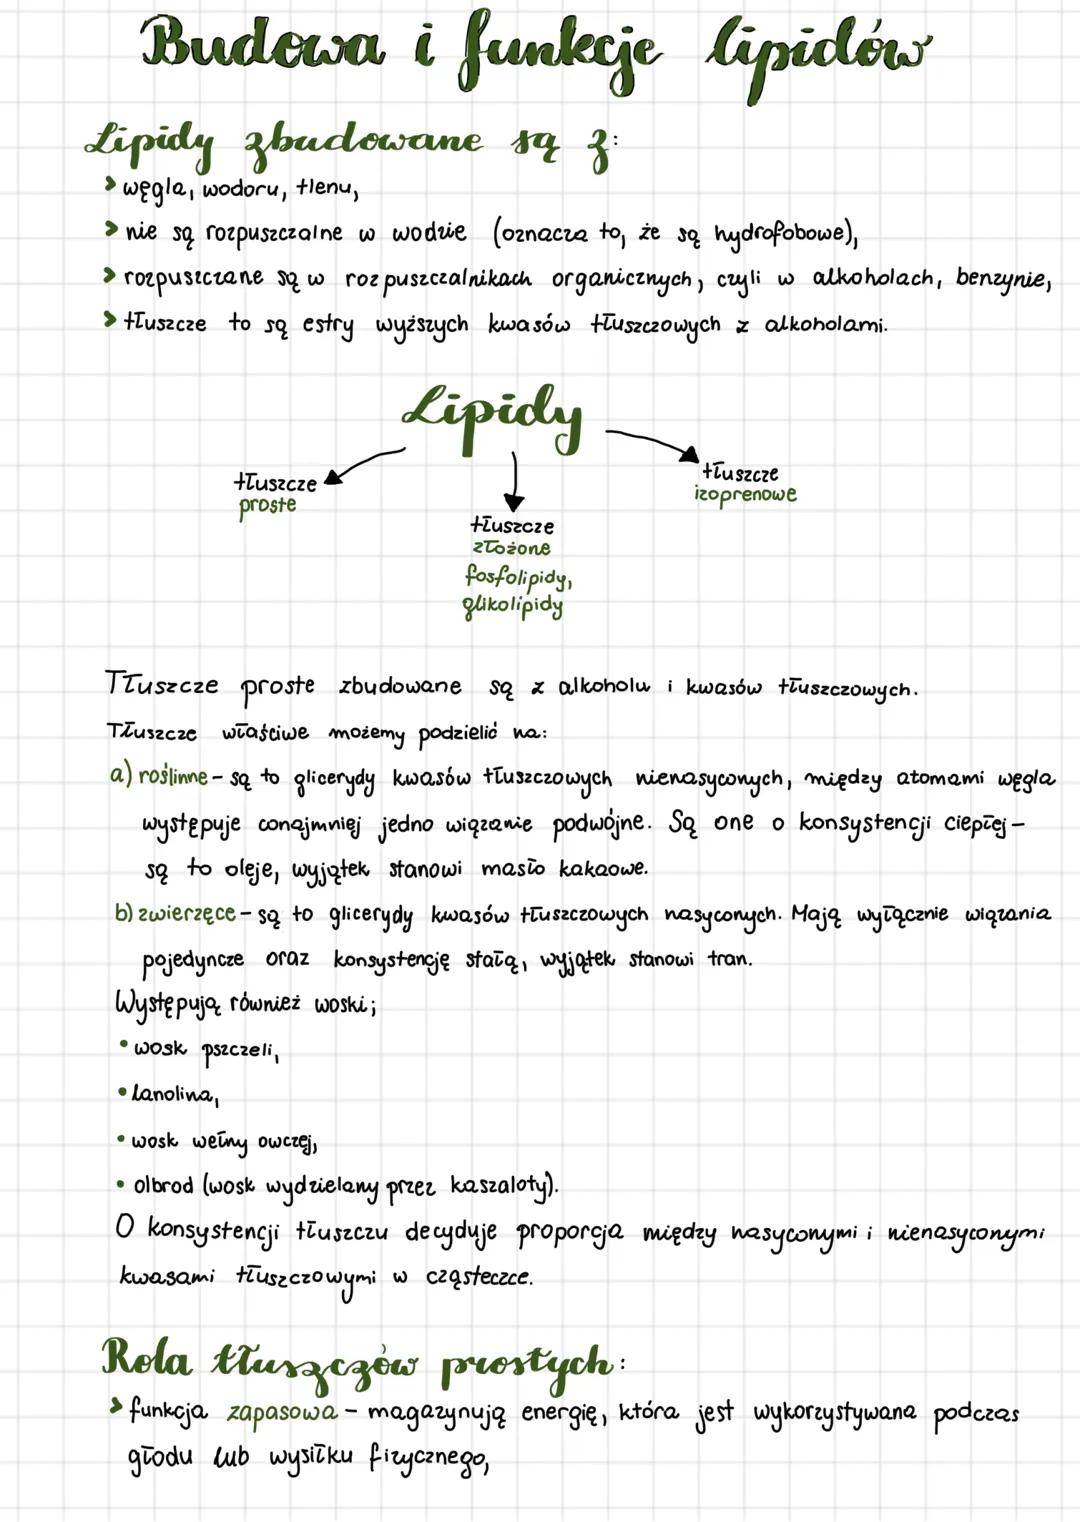 Budowa i funkcje lipidów
Lipidy zbudowane są z:
> węgla, wodoru, tlenu,
> nie są rozpuszczalne w wodzie (oznacza to, że są hydrofobowe),
> rozpuszczane są w rozpuszczalnikach organicznych, czyli w alkoholach, benzynie,
> tłuszcze to są estry wyższych kwasów tłuszczowych z alkoholami.
Lipidy
tłuszcze
proste
tłuszcze
złożone
fosfolipidy,
glikolipidy
tłuszcze
izoprenowe
Tłuszcze proste zbudowane są z alkoholu i kwasów tłuszczowych.
Tłuszcze właściwe możemy podzielić na:
a) roślinne - są to glicerydy kwasów tłuszczowych nienasyconych, między atomami węgla
występuje conajmniej jedno wiązanie podwójne. Są one o konsystencji ciepłej -
są to oleje, wyjątek stanowi masło kakaowe.
b) zwierzęce - są to glicerydy kwasów tłuszczowych nasyconych. Mają wyłącznie wiązania
pojedyncze oraz konsystencję stałą, wyjątek stanowi tran.
Występują również woski;
• wosk pszczeli,
• lanolina,
• wosk wełny owczej,
• olbrod (wosk wydzielany przez kaszaloty).
O konsystencji tłuszczu decyduje proporcja między nasyconymi i nienasyconymi
kwasami tłuszczowymi w cząsteczce.
Rola tłuszczów prostych:
> funkcja zapasowa - magazynują energię, która jest wykorzystywana podczas
głodu lub wysiłku fizycznego,